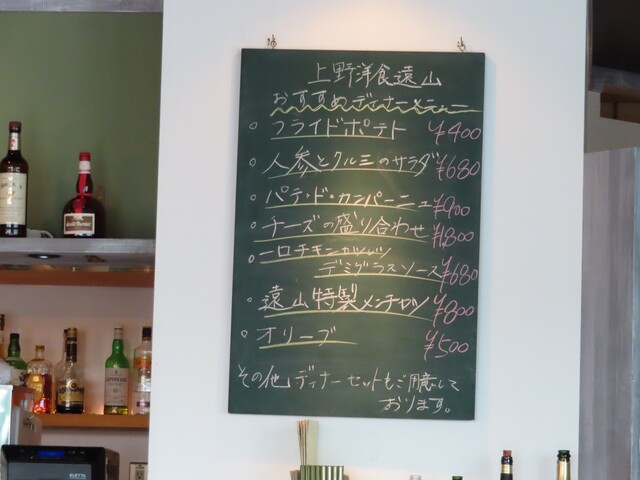 上野洋食遠山
おすすめディナーメニュー
○ フライドポテト ¥400
○ 人参とクルミのサラダ ¥680
○ パテ・ド・カンパーニュ ¥900
○ チーズの盛り合わせ ¥1,800
○ 一口チキンカツレツ
デミグラスソース ¥680
○ 遠山特製メンチカツ ¥800
○ オリーブ ¥500
その他ディナーセットもご用意して
おります。